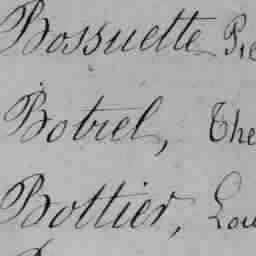 Bossuette
Botrel, The
Bottier, Lou